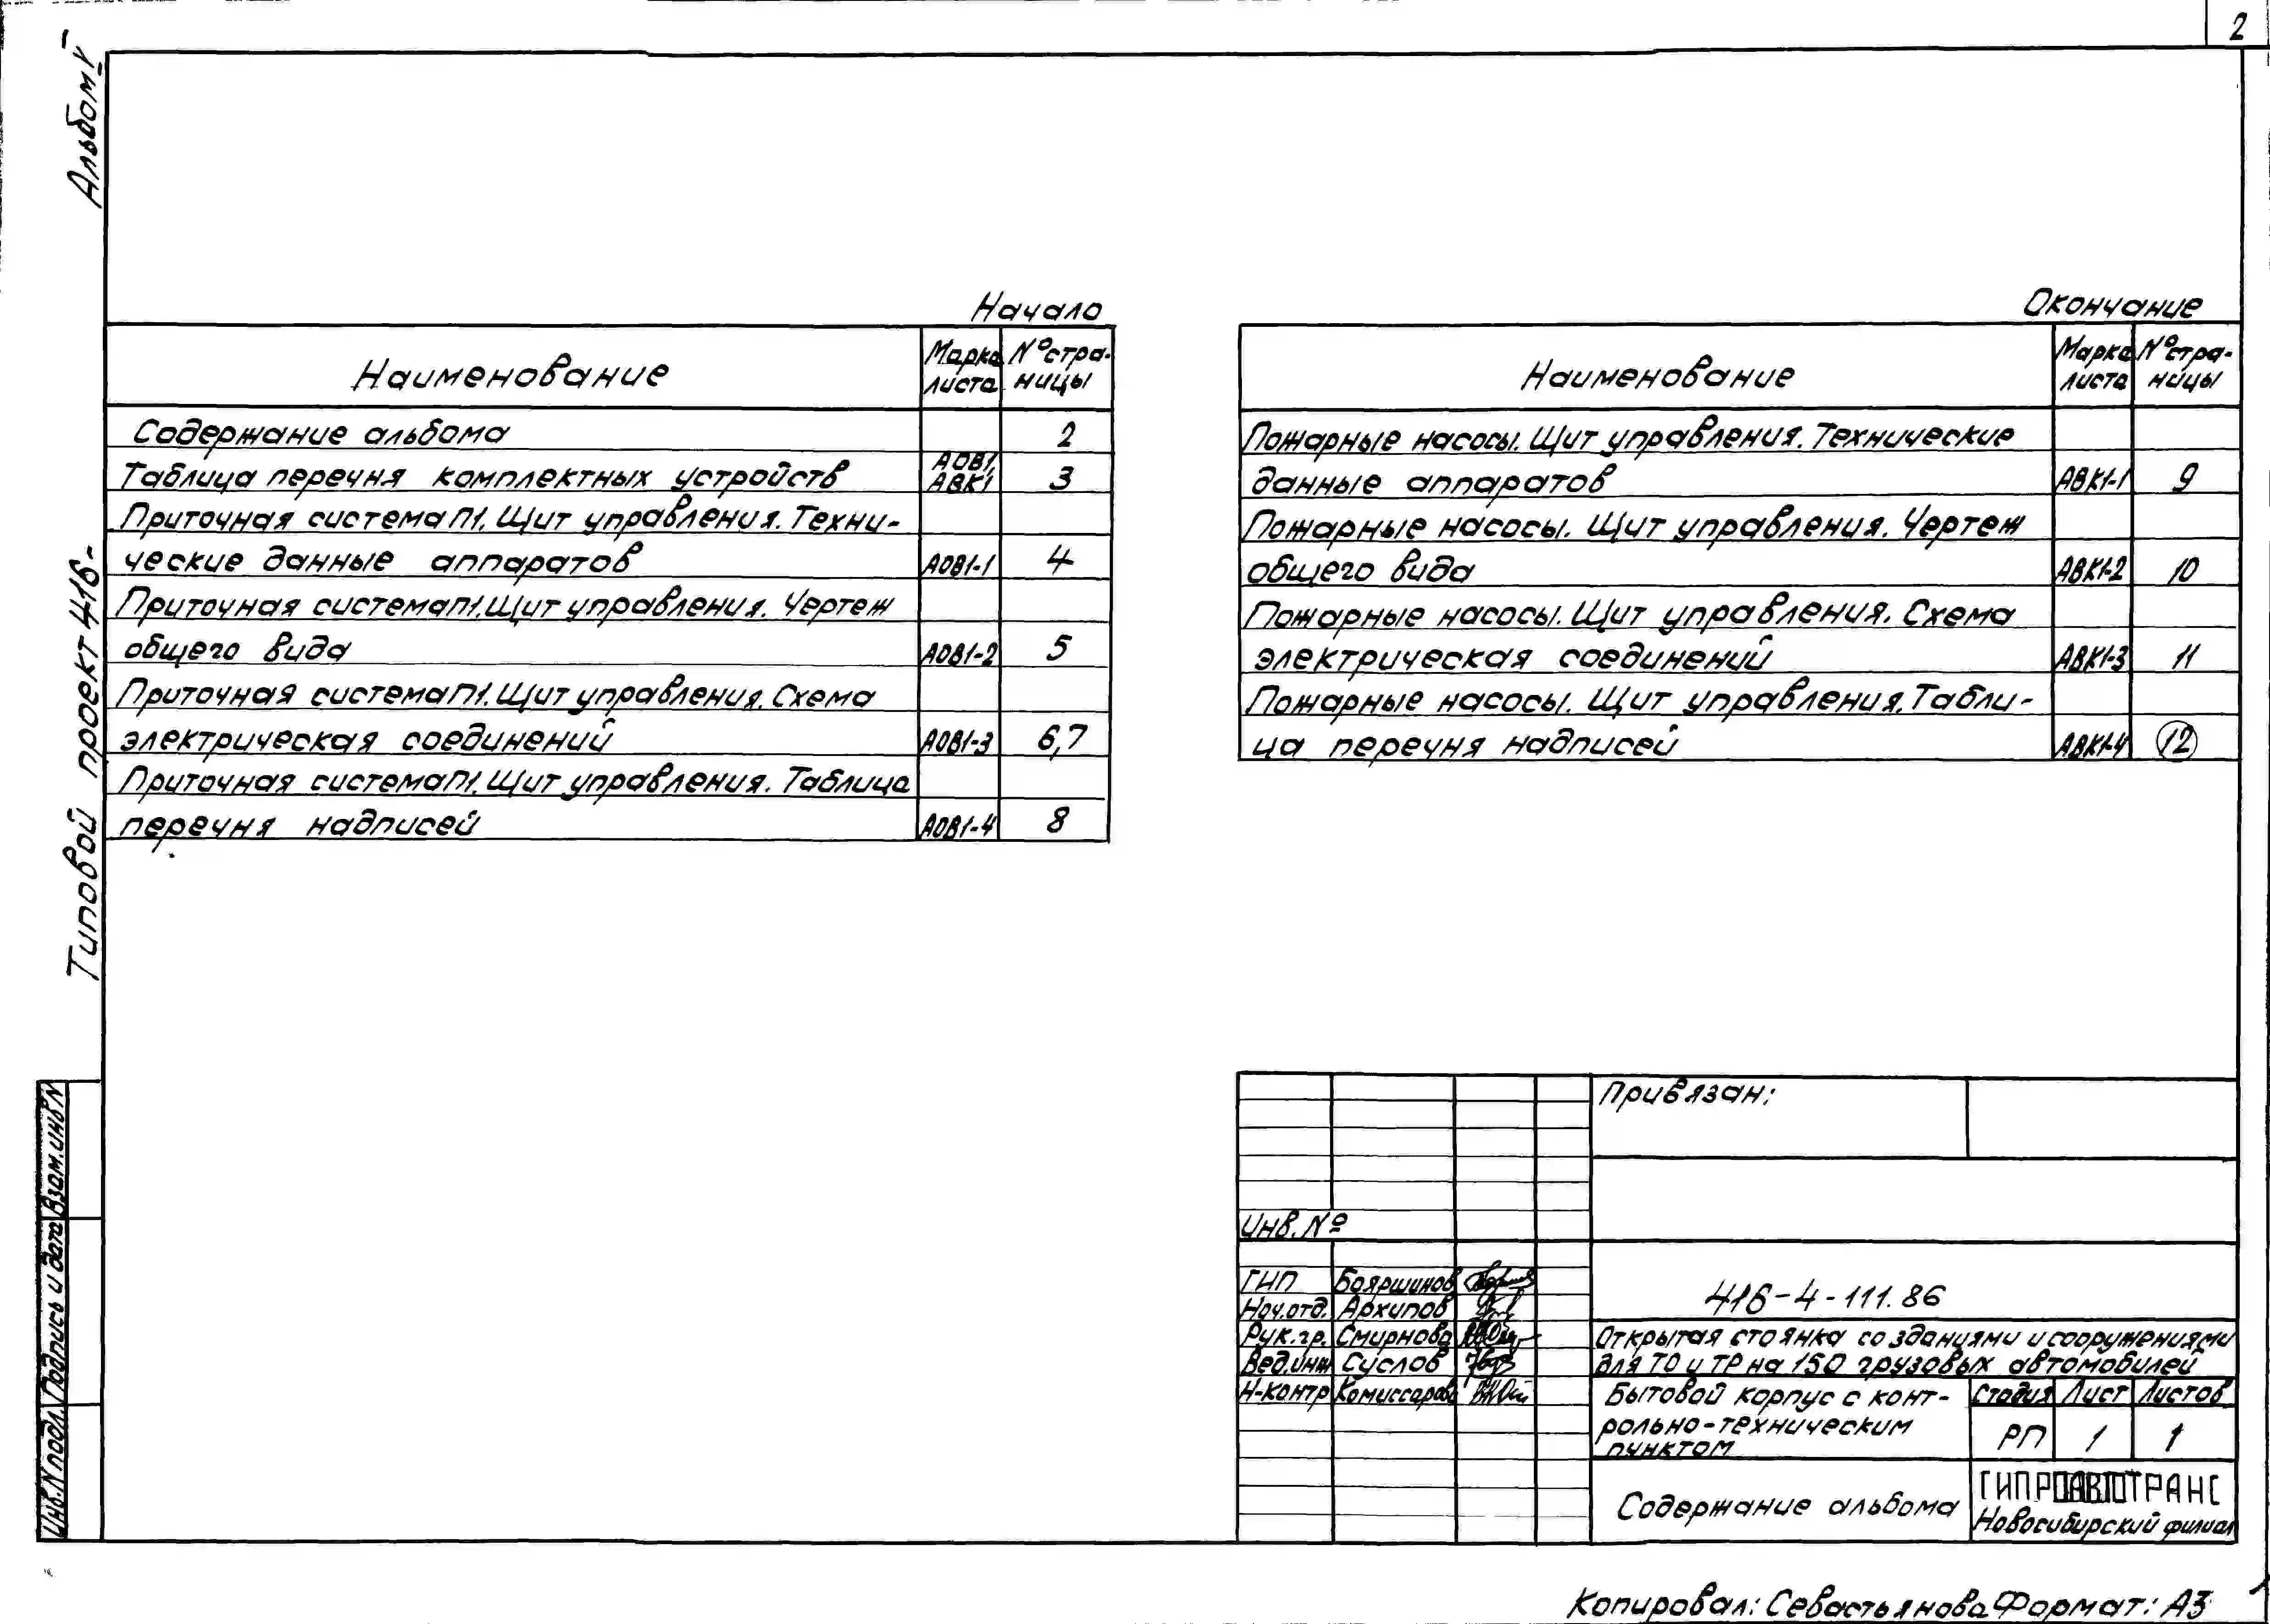 2
Альбом V
Типовой проект 416-
Начало
Наименование
Марка листа
№ страницы
Содержание альбома 2
Таблица перечня комплектных устройств АОВ1, АВК1 3
Приточная система П1. Щит управления. Техни-
ческие данные аппаратов АОВ1-1 4
Приточная система П1. Щит управления. Чертеж
общего вида АОВ1-2 5
Приточная система П1. Щит управления. Схема
электрическая соединений АОВ1-3 6,7
Приточная система П1. Щит управления. Таблица
перечня надписей АОВ1-4 8
Окончание
Наименование
Марка листа
№ страницы
Пожарные насосы. Щит управления. Технические
данные аппаратов АВК1-1 9
Пожарные насосы. Щит управления. Чертеж
общего вида АВК1-2 10
Пожарные насосы. Щит управления. Схема
электрическая соединений АВК1-3 11
Пожарные насосы. Щит управления. Табли-
ца перечня надписей АВК1-4 12
Привязан:
Инв. №
ГИП Бояршинов
Нач.отд. Архипов
Рук.гр. Смирнова
Вед.инж Суслов
Н-контр Комиссарова
416-4-111.86
Открытая стоянка со зданиями и сооружениями
для ТО и ТР на 150 грузовых автомобилей
Бытовой корпус с конт-
рольно-техническим
пунктом
Стадия Лист Листов
РП 1 1
Содержание альбома
ГИПРОАВТОТРАНС
Новосибирский филиал
Взам.инв N
Подпись и дата
Инв.N подл.
Копировал: Севастьянова Формат: А3